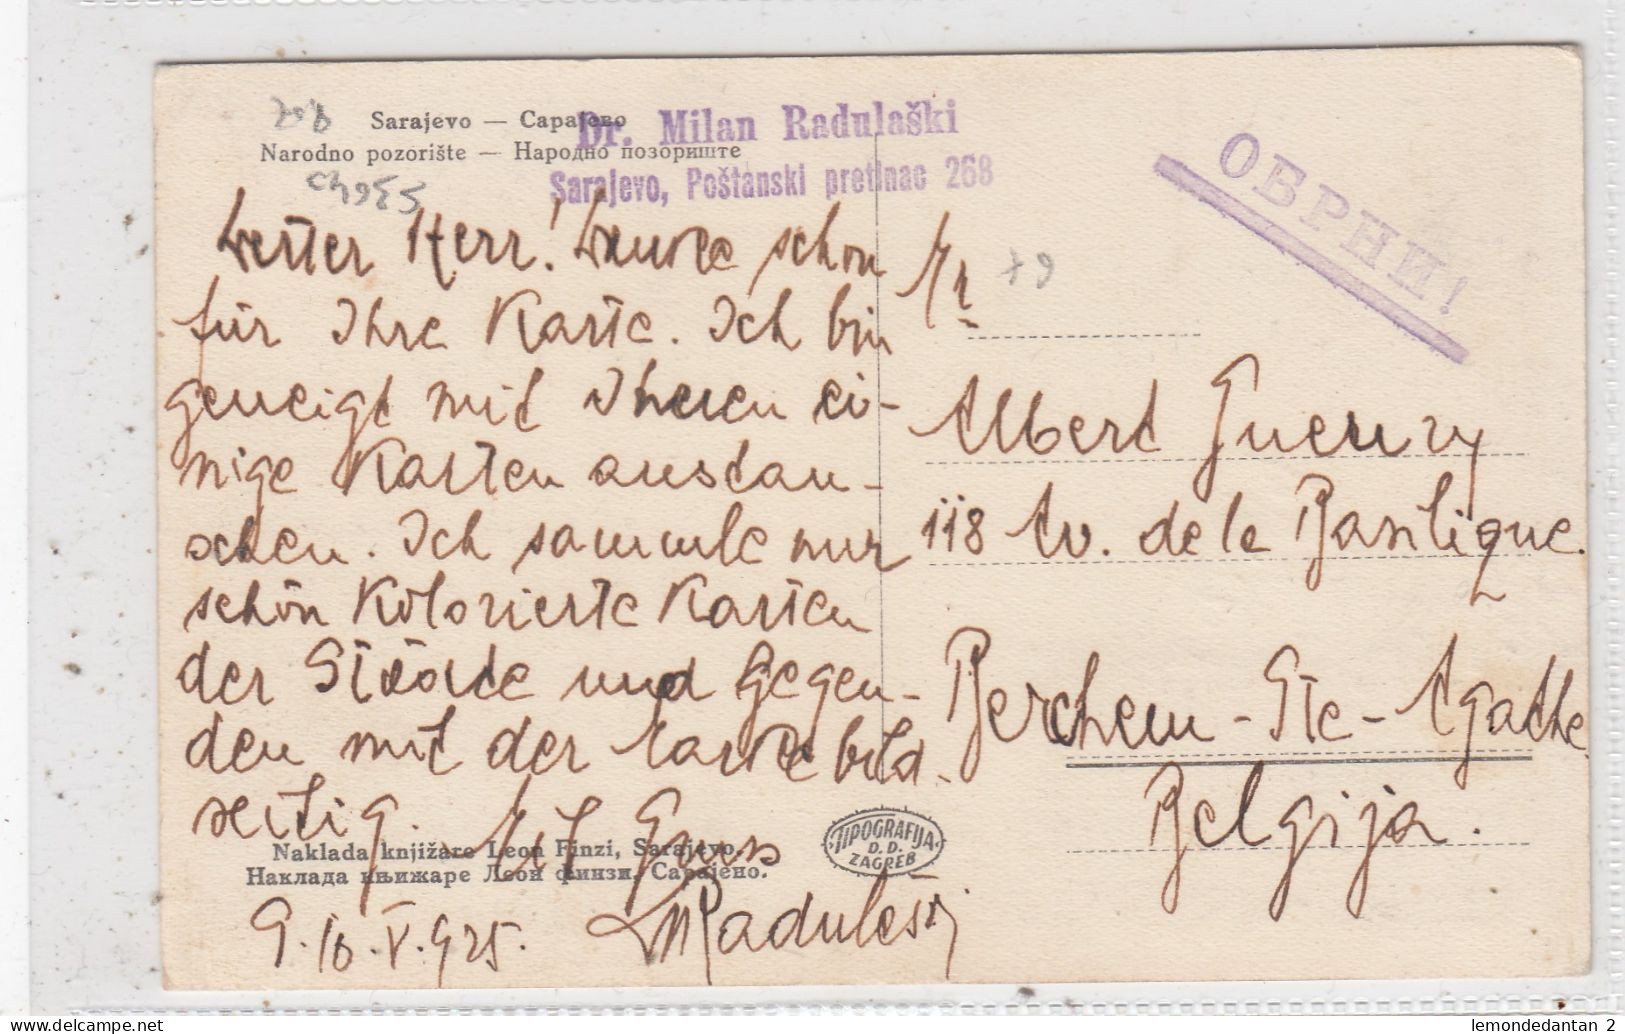 Sarajevo — Сарајево
Narodno pozorište — Народно позориште
Dr. Milan Radulaški
Sarajevo, Poštanski pretinac 268
ОБРНИ!
Werter Herr! Danke schön
für Ihre Karte. Ich bin
geneigt mit Ihnen ei-
nige Karten austau-
schen. Ich sammle nur
schön Kolorierte Karten
der Städte und Gegen-
den mit der Marke bild-
seitig. Mit Gruss
MRadulaški
9.10.V.925.
Albert Guenry
118 Av. de la Basilique.
Berchem-Ste-Agathe
Belgija.
Naklada knjižare Leon Finzi, Sarajevo.
Наклада књижаре Леон Финзи, Сарајево.
TIPOGRAFIJA
D. D.
ZAGREB
lemondedantan 2